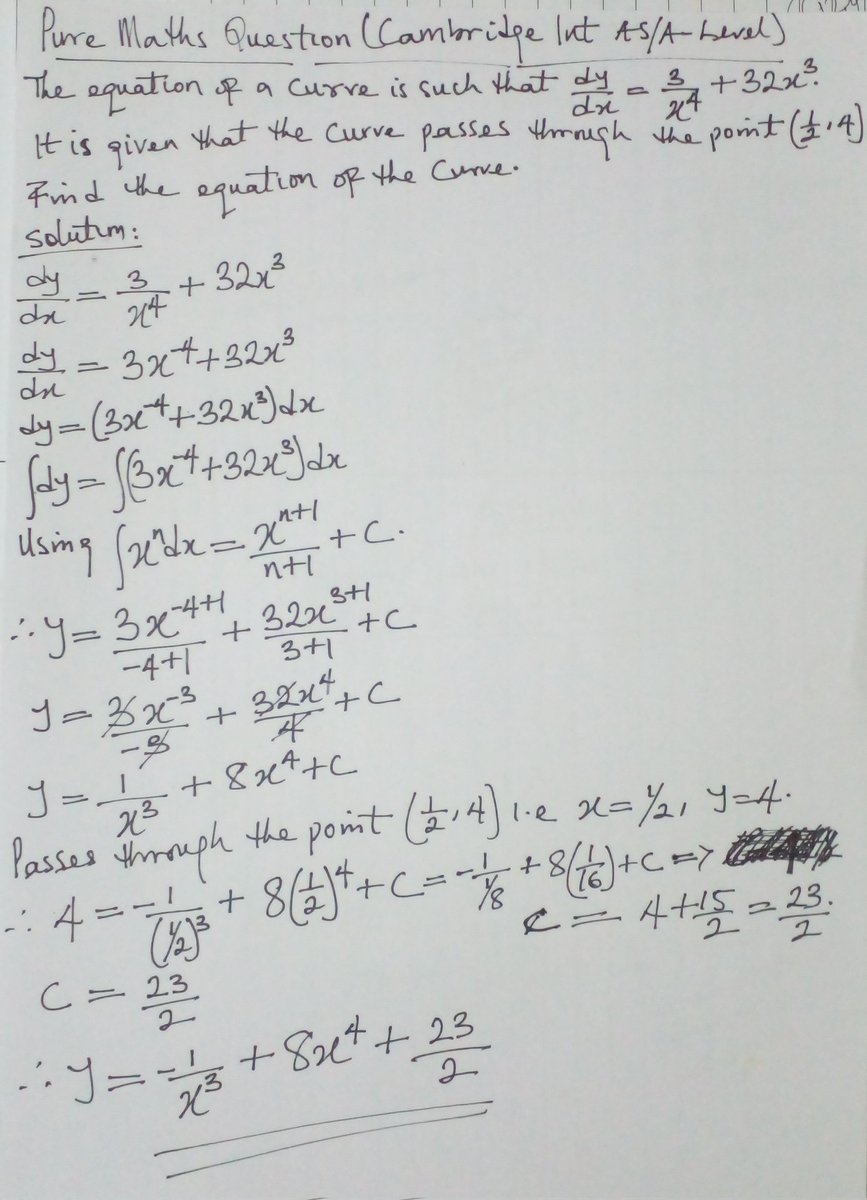 Pure Maths Question (Cambridge Int AS/A-Level)
The equation of a curve is such that dy/dx = 3/x⁴ + 32x³.
It is given that the curve passes through the point (1/2, 4)
Find the equation of the curve.
Solution:
dy/dx = 3/x⁴ + 32x³
dy/dx = 3x⁻⁴ + 32x³
dy = (3x⁻⁴ + 32x³)dx
∫dy = ∫(3x⁻⁴ + 32x³)dx
Using ∫xⁿdx = xⁿ⁺¹/n+1 + C.
∴ y = 3x⁻⁴⁺¹/-4+1 + 32x³⁺¹/3+1 + C
y = 3x⁻³/-3 + 32x⁴/4 + C
y = -1/x³ + 8x⁴ + C
Passes through the point (1/2, 4) i.e x = 1/2, y = 4.
∴ 4 = -1/(1/2)³ + 8(1/2)⁴ + C = -1/1/8 + 8(1/16) + C =>
C = 4 + 15/2 = 23/2.
C = 23/2
∴ y = -1/x³ + 8x⁴ + 23/2